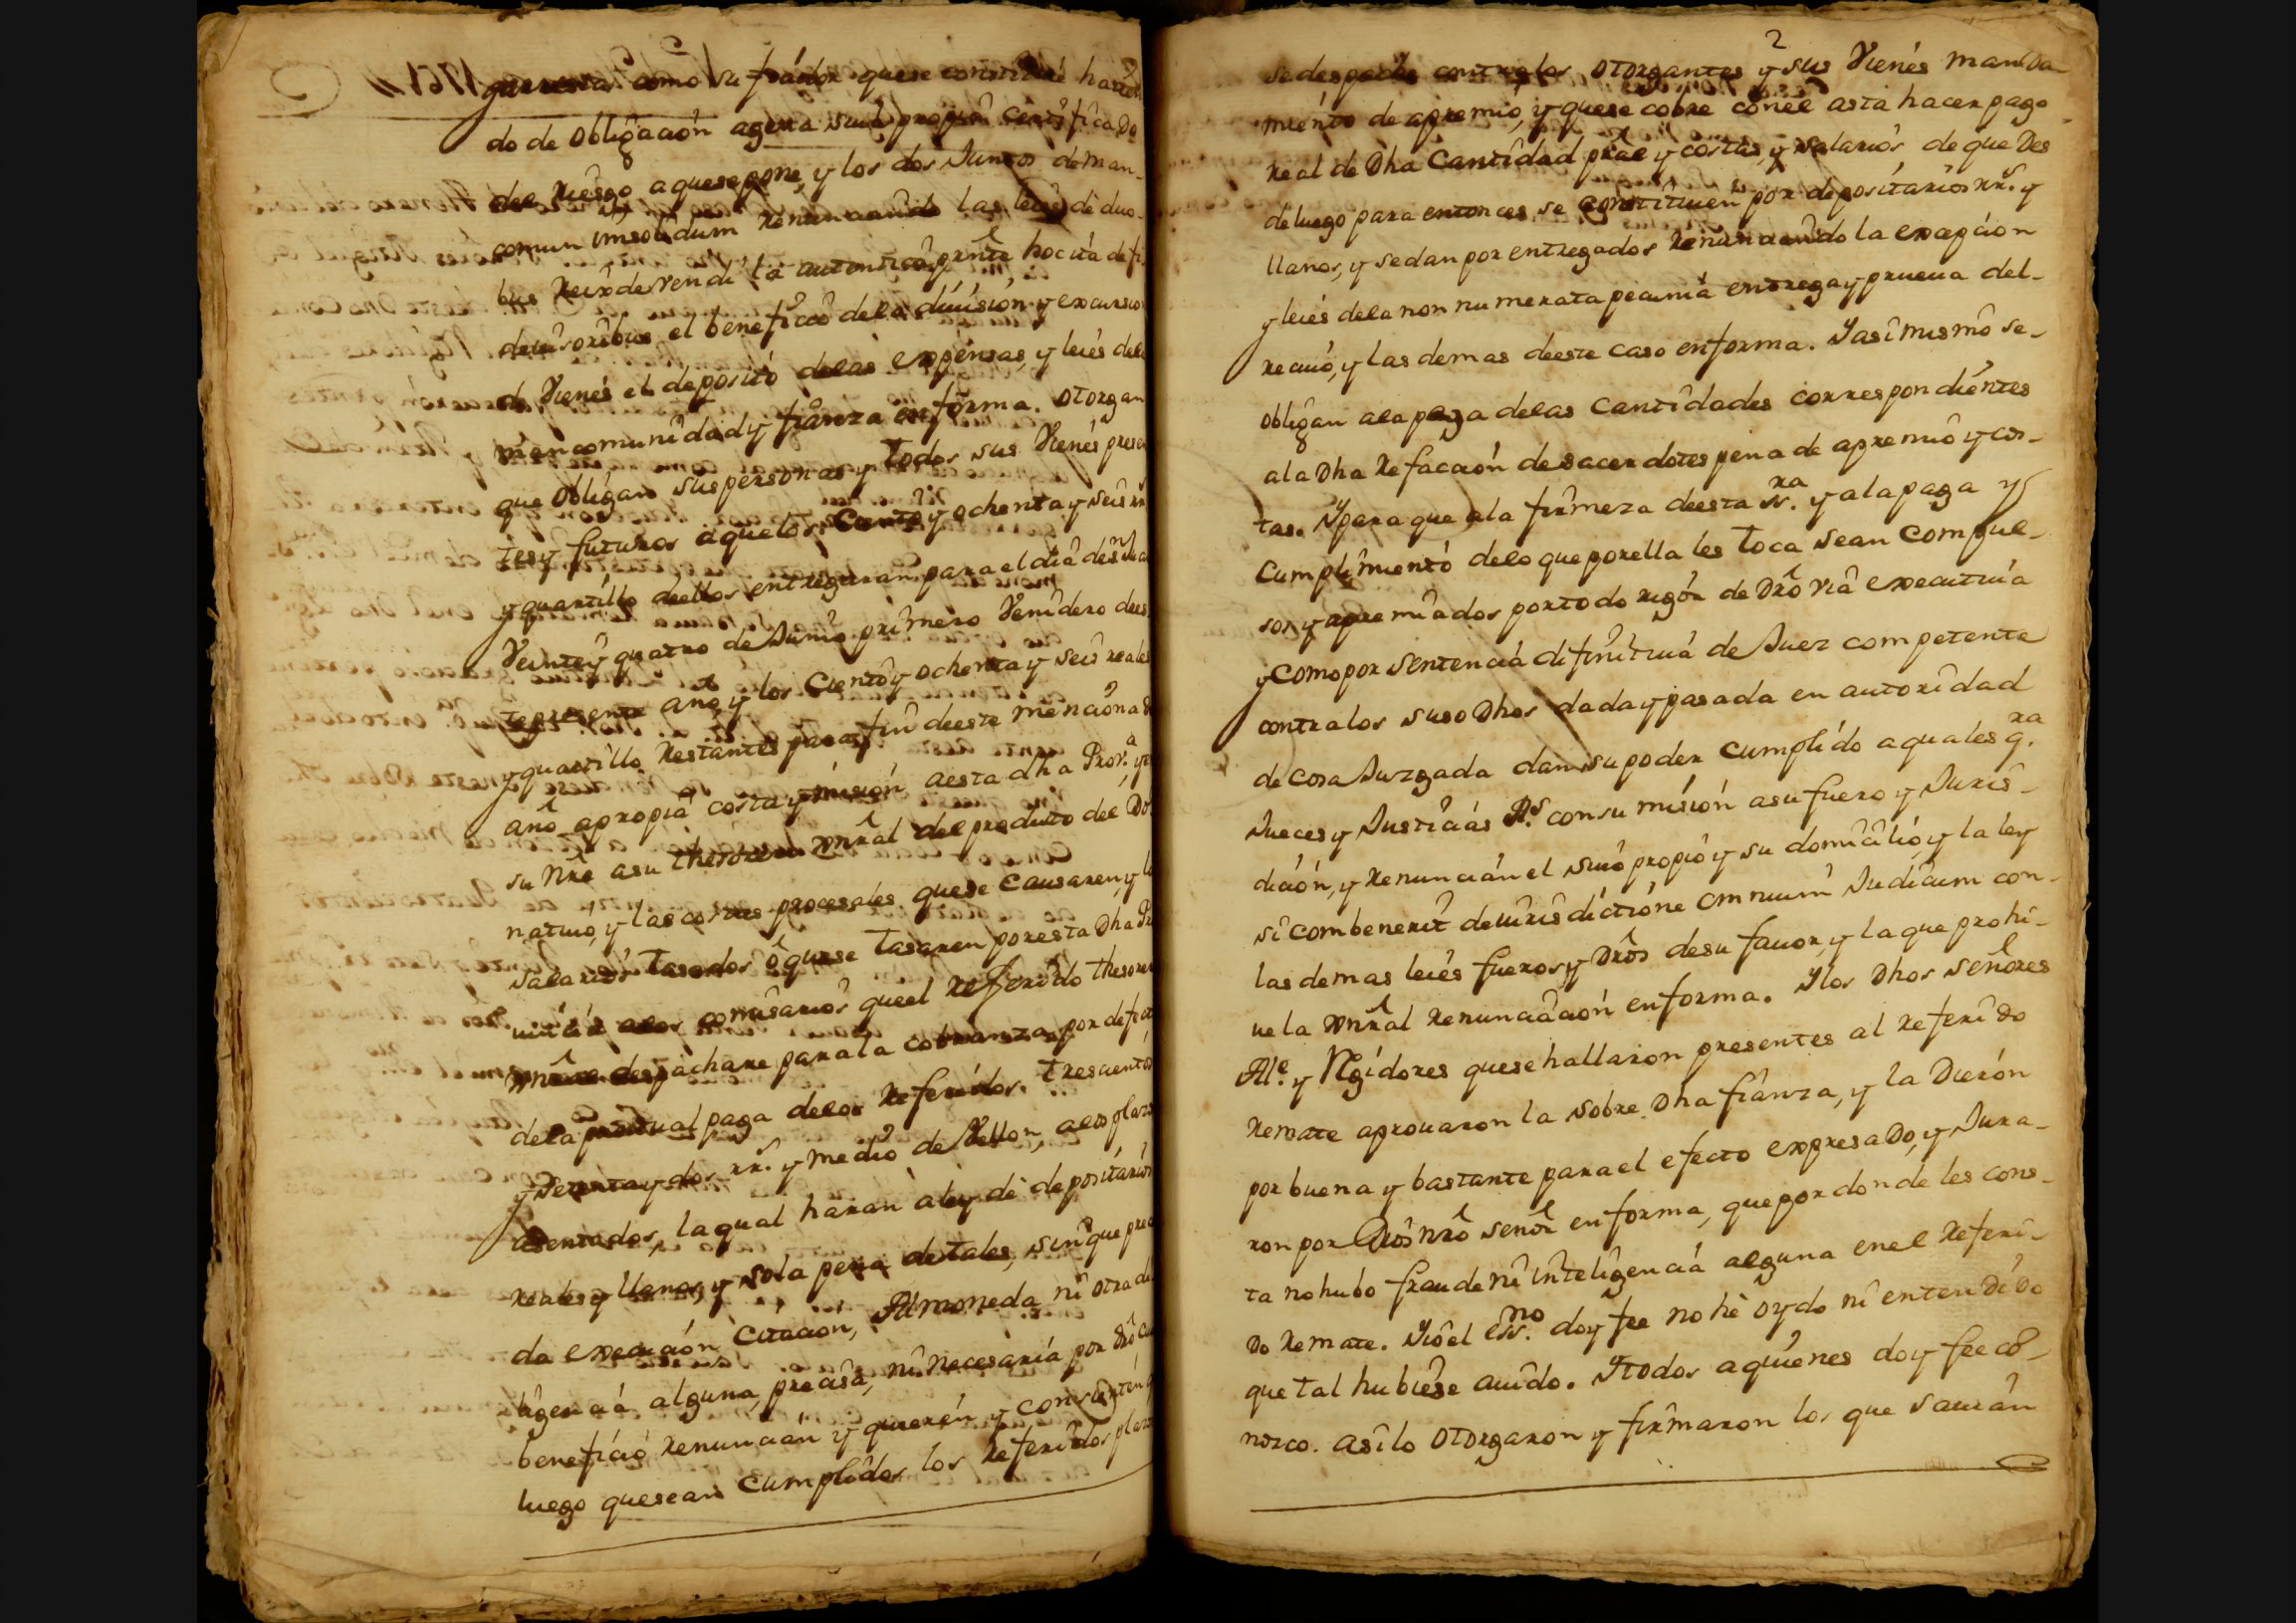 querena como su fiador que se constituie hacien
do de obligazion agena suia propia Certificado
del riesgo aquesepone, y los dos Juntos de man-
comun imsolidum renunciando las leies de duo-
bus Reix devendi la autentica presente hoc ita de fi
deiusoribus el beneficio dela diuision y excursion
de Vienes el deposito delas expensas, y leies dela
mancomunidad y fianza en forma. Otorgan
que obligan sus personas y todos sus Vienes presen
tes y futuros aquelos Ciento y ochenta y seis rrs
y quartillo deellos entregaran para el dia de sn Jua
Veinte y quatro de Junio primero Venidero dees
te presente año, y los Ciento y ochenta y seis reales
y quartillo restantes para fin deeste menciona
año apropia costa y mision aesta dha Prova. y
su nre asu thesorero gnral del produto del Do
natiuo, y las costas procesales que se Causaren, y l
salarios tasados o que se tasaren por esta Dha Pr
uincia alos comisarios que el referido thesore
gnral despachare para la cobranza por defect
dela puntual paga delos referidos trescientos
y setenta y dos rrs. y medio de Vellon, alos plazos
asentados, la qual haran aley de depositarios
reales y llanos, y sola pena de tales, sin que pre
da execuzion Citacion, Almoneda ni otra di
ligencia alguna, precisa, ni necesaria por dro, cu
beneficio renuncian y quieren y consienten q
luego que sean Cumplidos los referidos plazo
2
se despache contra los otorgantes y sus Vienes manda
miento de apremio, y que se cobre con el asta hacer pago
real de Dha Cantidad pral y costas, y salarios de que Des
de luego para entonces se constituien por depositarios rrs. y
llanos, y se dan por entregados renunciando la excepcion
y leies dela non numerata pecunia entrega y prueua del-
reciuo, y las demas deeste caso en forma. Y asi mismo se-
obligan ala paga delas Cantidades correspondientes
ala Dha refaccion de sacerdotes pena de apremio y cos-
tas. Y para que ala firmeza deesta ssra. y ala paga y
Cumplimiento delo que por ella les toca sean Compul-
sos y apremiados por todo rigor de Dro via executiua
y como por Sentencia difinitiua de Juez competente
contra los suso Dhos dada y pasada en autoridad
de cosa Juzgada dan su poder Cumplido a quales qra.
Jueces y Justicias Rs. con sumision asu fuero y Juris-
dicion, y renuncian el suio propio y su domicilio, y la ley
si combenerit de iurisdictione omnium Judicum con-
las demas leies fueros y Dros desu fauor, y la que prohi-
ue la gnral renunciacion en forma. Y los Dhos señores
Alce. y Regidores que se hallaron presentes al referido
remate aprouaron la sobre dha fianza, y la Dieron
por buena y bastante para el efecto expresado, y Jura-
ron por Dios nro señor en forma, que por donde les cons-
ta no hubo fraude ni inteligencia alguna en el referi-
do remate. Yo el essno. doy fee no he oydo ni entendido
que tal hubiese auido. Y todos aquienes doy fee co-
nozco. asi lo otorgaron y firmaron los que sauian